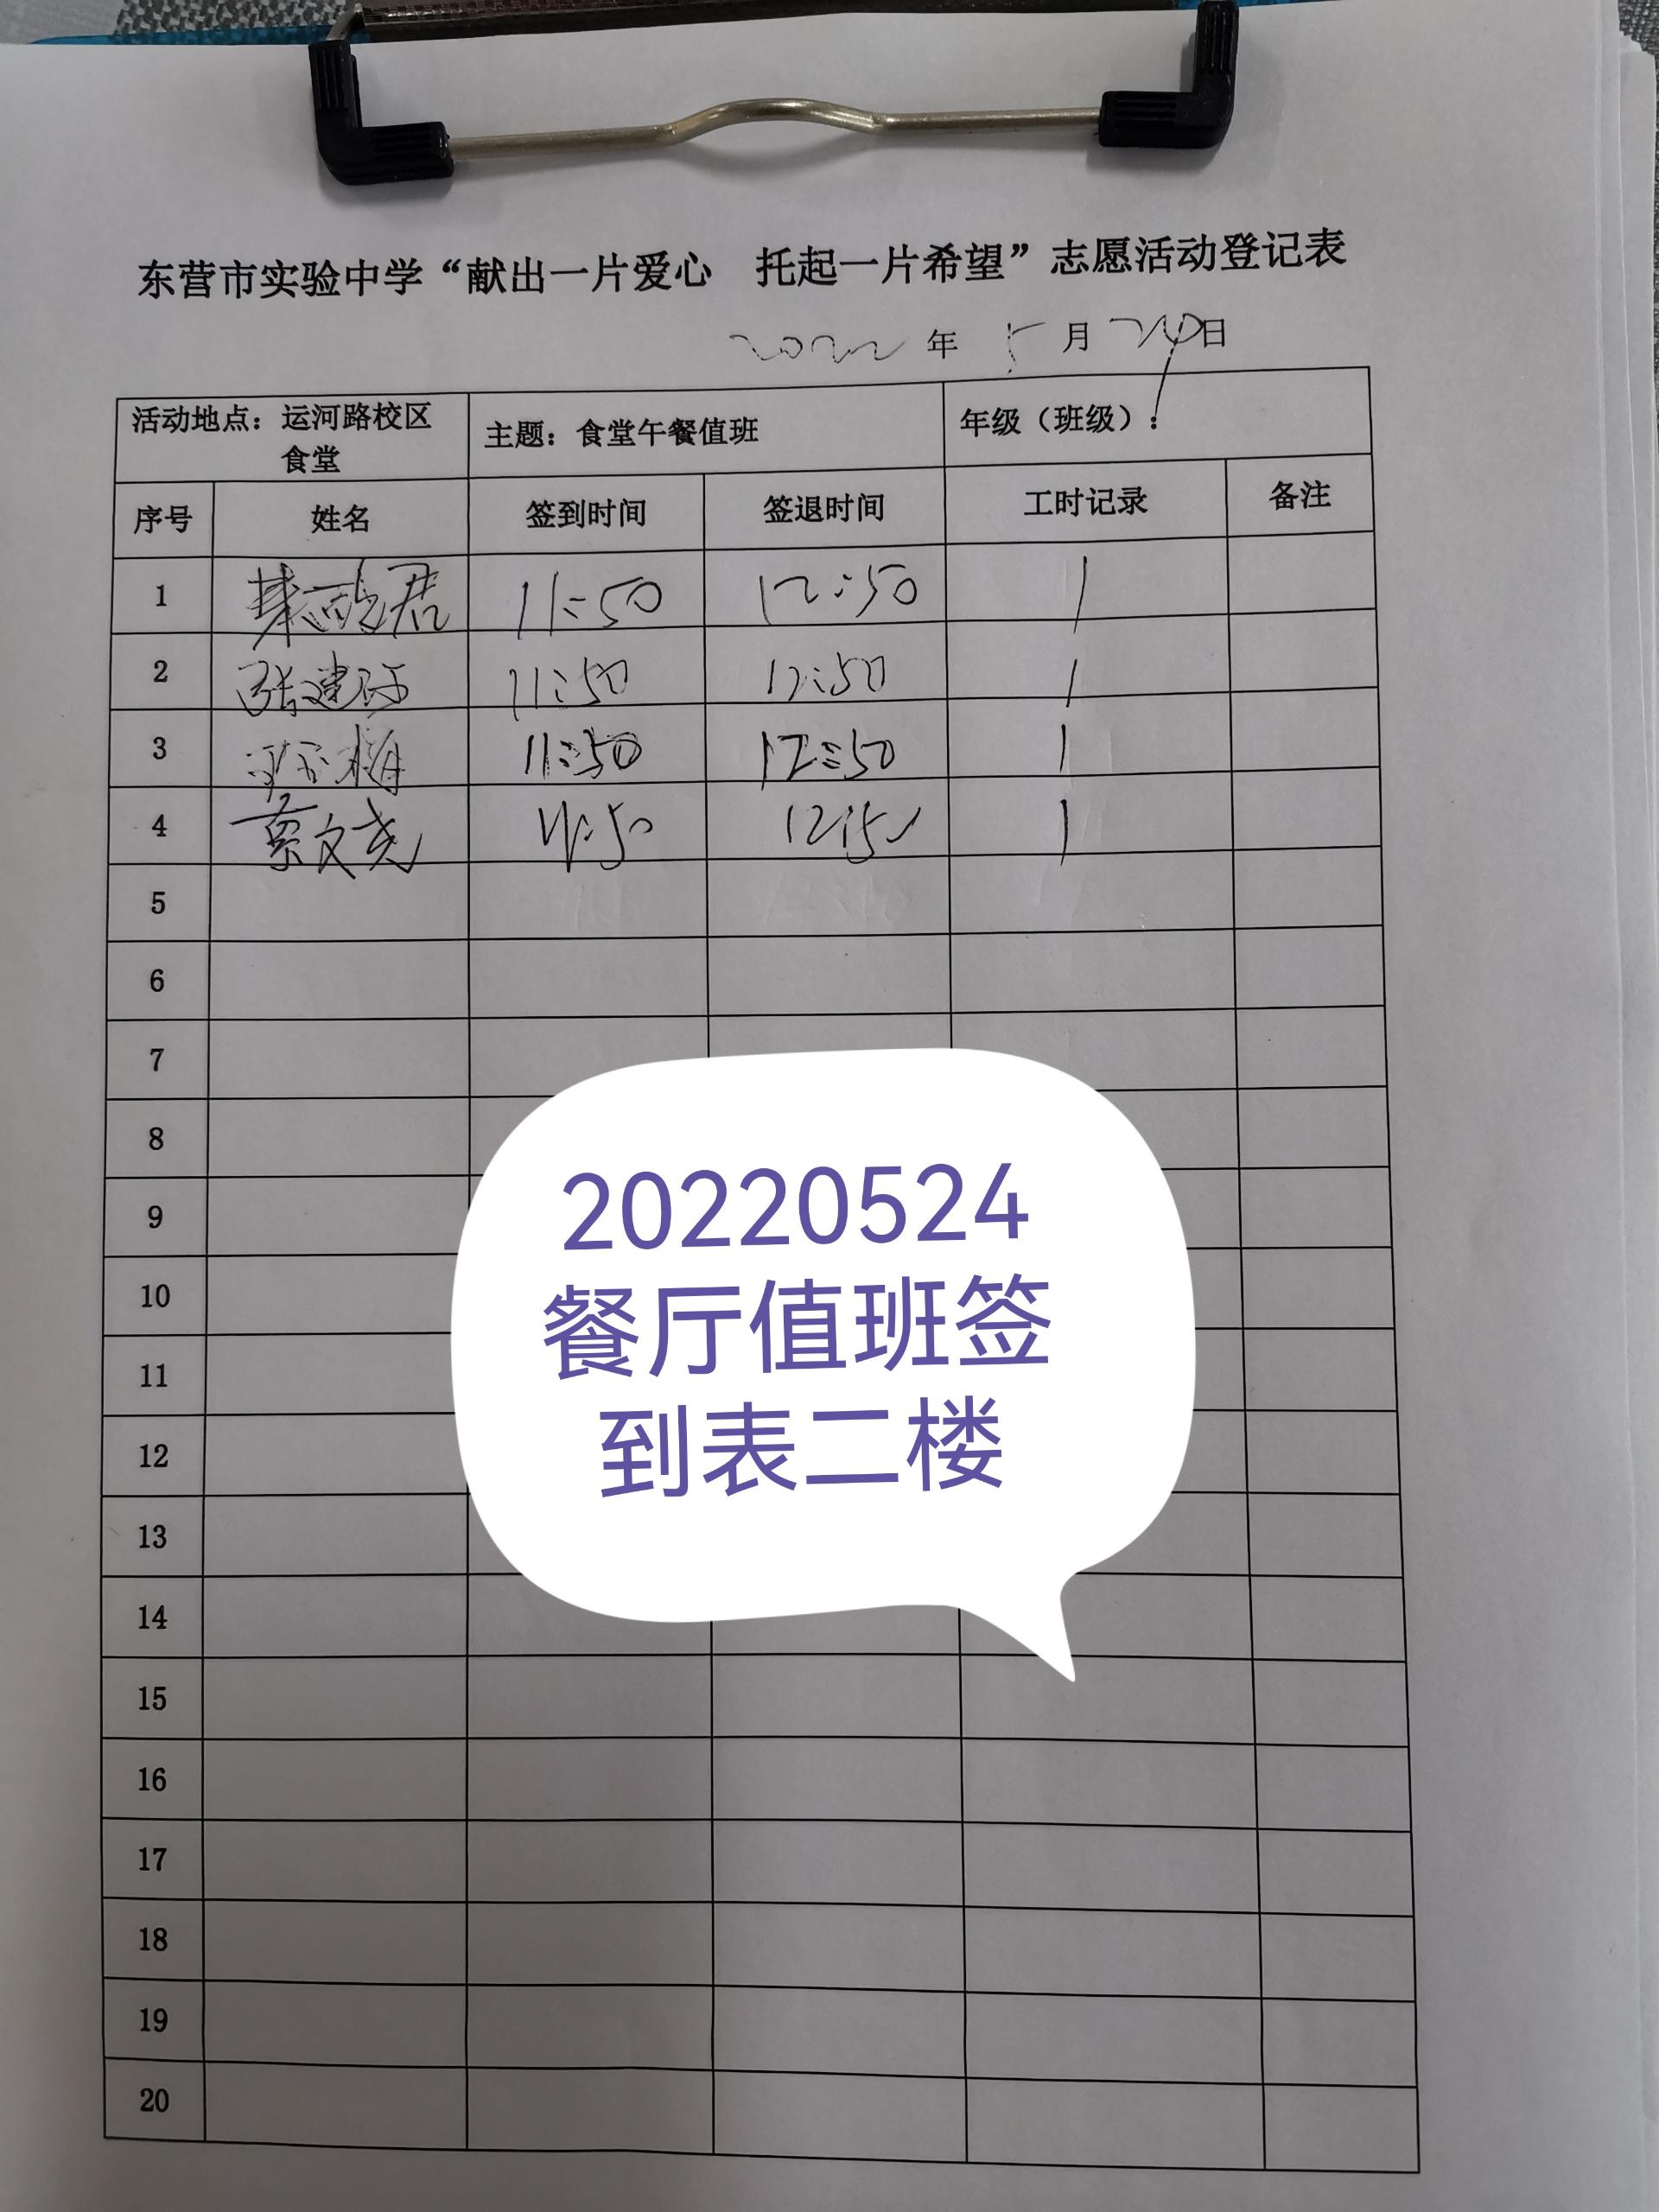 东营市实验中学“献出一片爱心 托起一片希望”志愿活动登记表
2022年5月24日
活动地点：运河路校区食堂 主题：食堂午餐值班 年级（班级）：
序号 姓名 签到时间 签退时间 工时记录 备注
1 11:50 12:50 1
2 张建 11:50 12:50 1
3 梅 11:50 12:50 1
4 蔡文尧 11:50 12:50 1
5
6
7
8
9
10
11
12
13
14
15
16
17
18
19
20
20220524
餐厅值班签
到表二楼